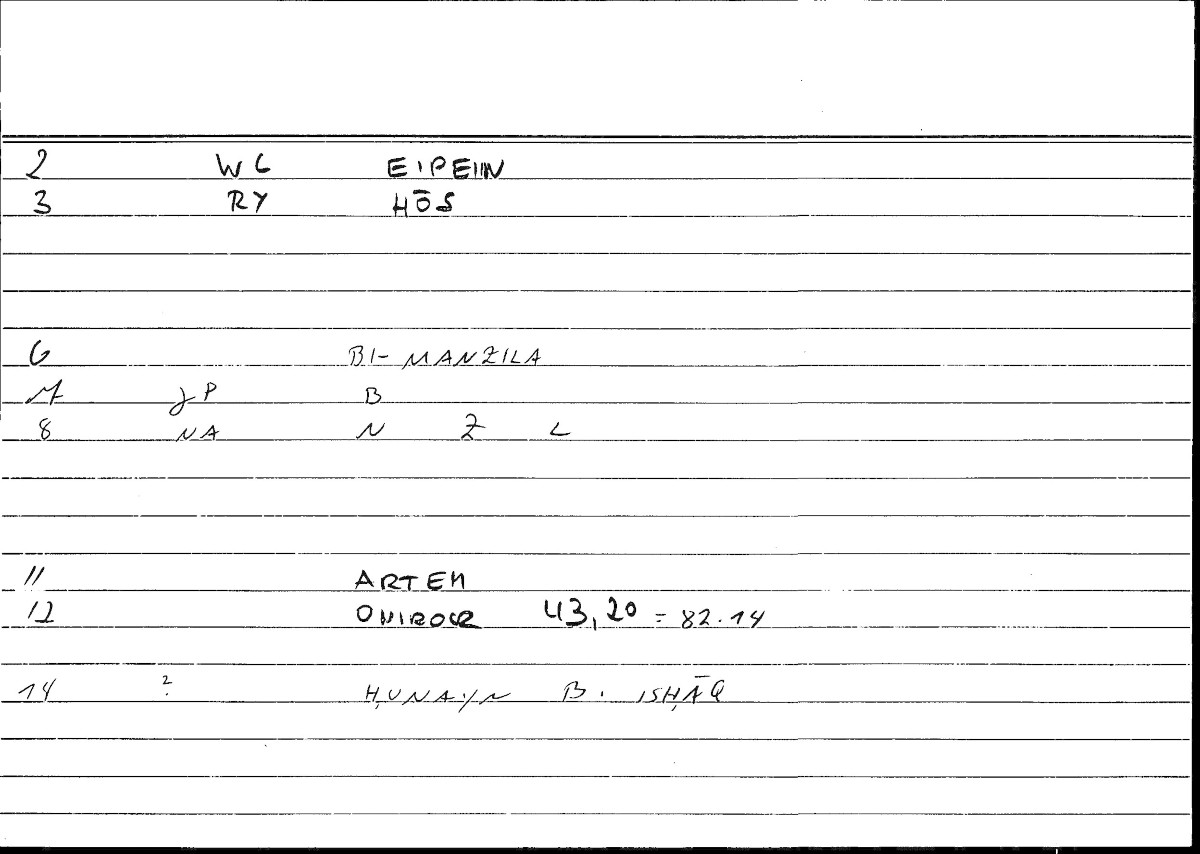 2 WC EIPEIIN
3 RY HŌS
6 BI-MANZILA
7 JP B
8 NA N Z L
11 ARTEM
12 ONIROCR 43,20 = 82.14
14 ? ḤUNAYN B. ISḤĀQ